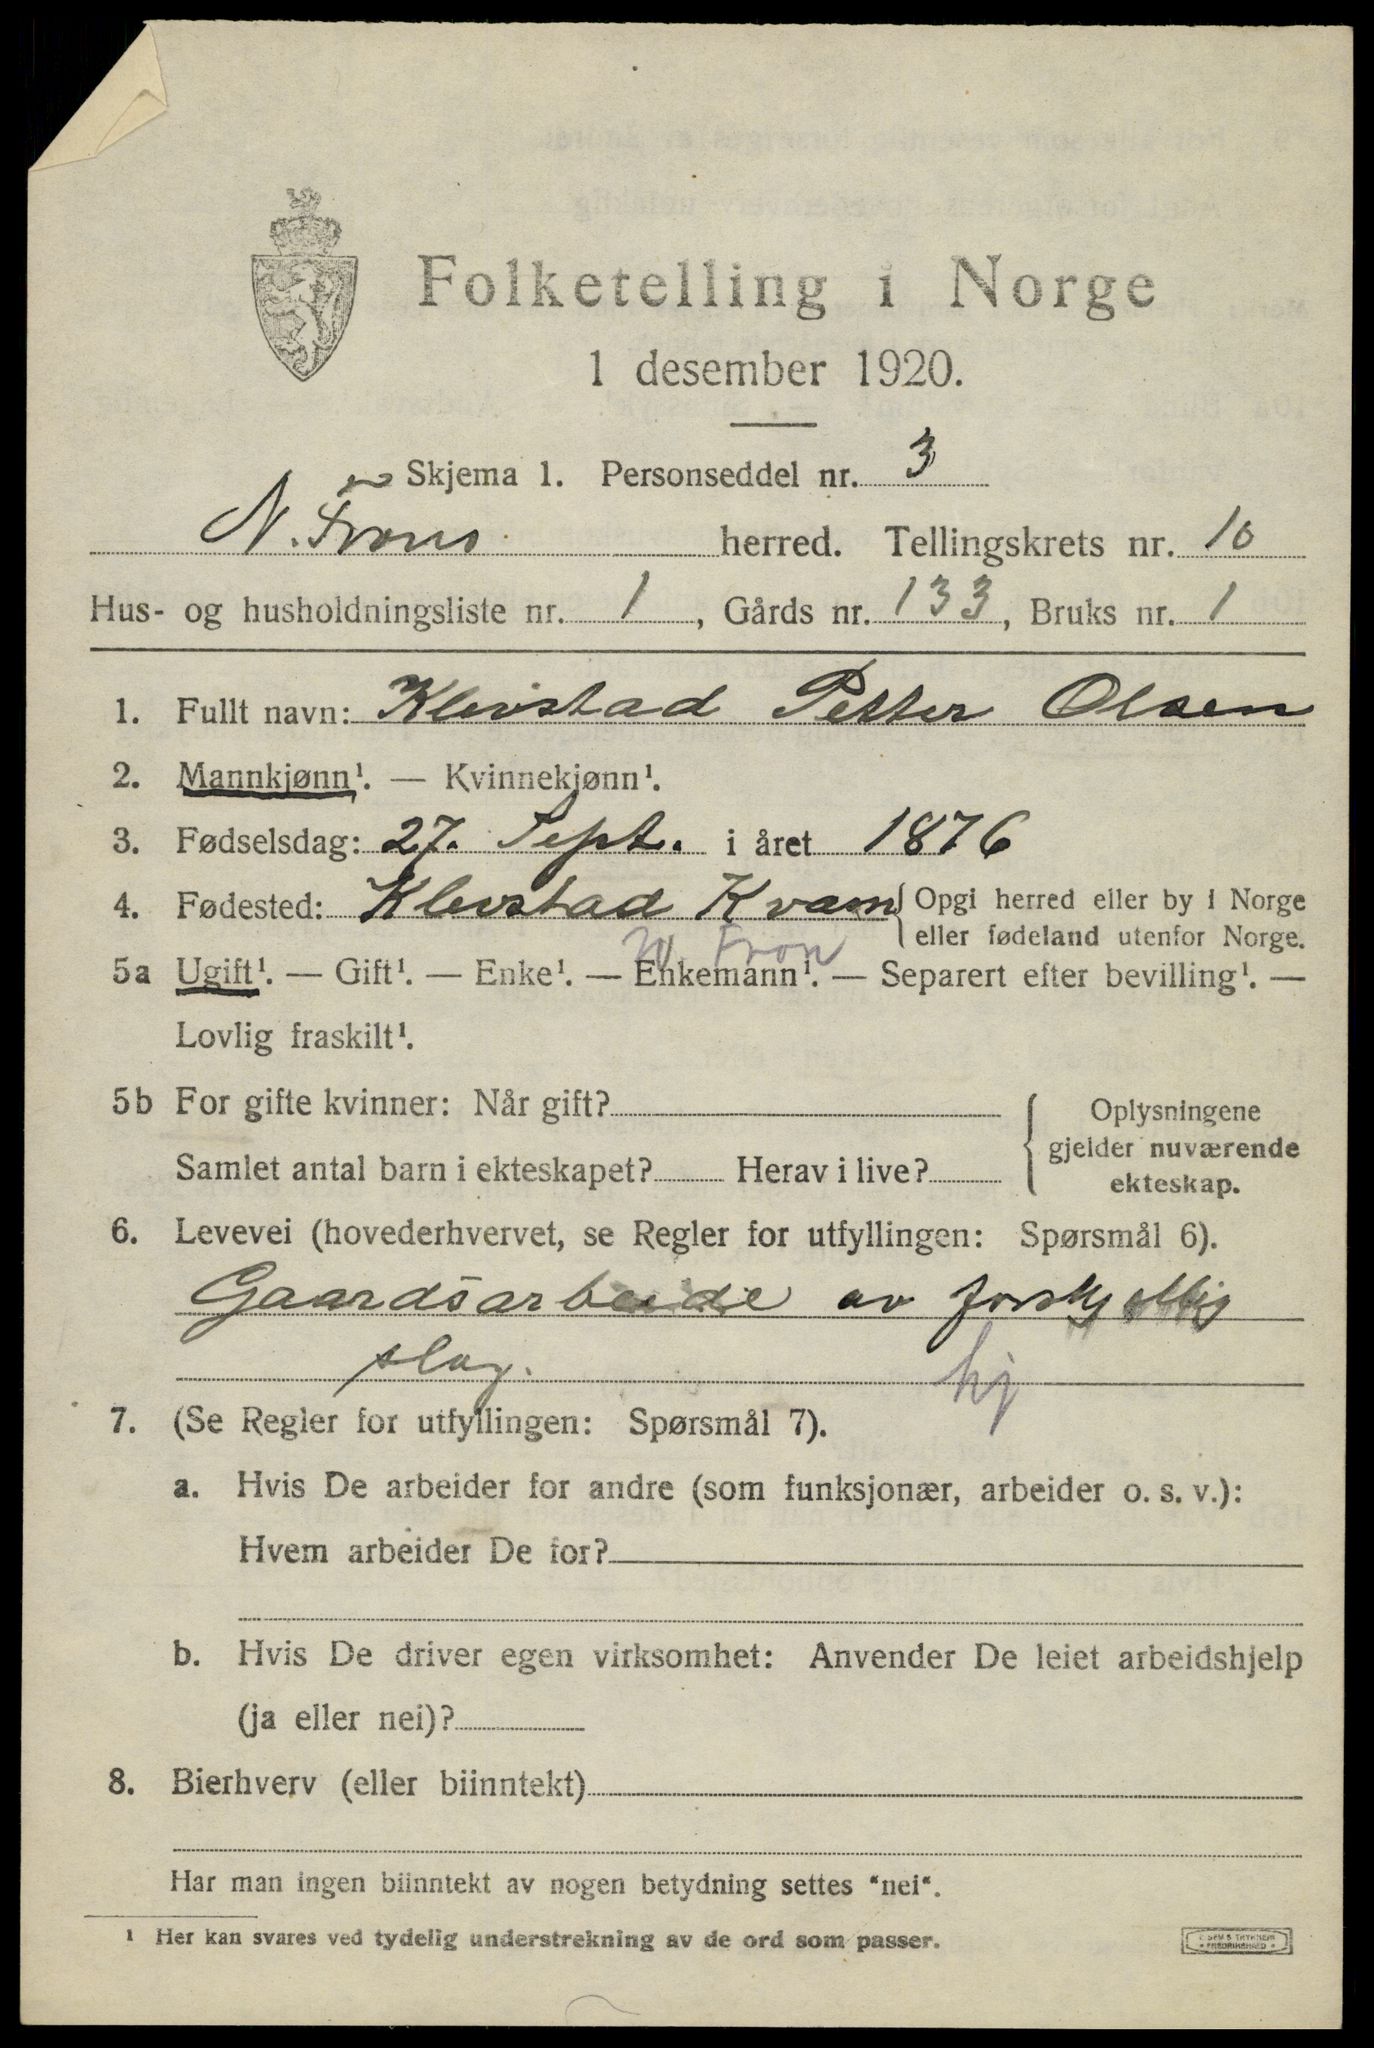 Folketelling i Norge
1 desember 1920.
Skjema 1. Personseddel nr. 3
N. Frons herred. Tellingskrets nr. 10
Hus- og husholdningsliste nr. 1, Gårds nr. 133, Bruks nr. 1
1. Fullt navn: Klevstad Petter Olsen
2. Mannkjønn¹. — Kvinnekjønn¹.
3. Fødselsdag: 27. Sept. i året 1876
4. Fødested: Klevstad Kvam { Opgi herred eller by i Norge
eller fødeland utenfor Norge.
N. Fron
5a Ugift¹. — Gift¹. — Enke¹. — Enkemann¹. — Separert efter bevilling¹. —
Lovlig fraskilt¹.
5b For gifte kvinner: Når gift?
Samlet antal barn i ekteskapet? Herav i live?
{ Oplysningene
gjelder nuværende
ekteskap.
6. Levevei (hovederhvervet, se Regler for utfyllingen: Spørsmål 6).
Gaardsarbeide av forskjellig
slag. hj
7. (Se Regler for utfyllingen: Spørsmål 7).
a. Hvis De arbeider for andre (som funksjonær, arbeider o. s. v.):
Hvem arbeider De for?
b. Hvis De driver egen virksomhet: Anvender De leiet arbeidshjelp
(ja eller nei)?
8. Bierhverv (eller biinntekt)
Har man ingen biinntekt av nogen betydning settes "nei".
¹ Her kan svares ved tydelig understrekning av de ord som passer.